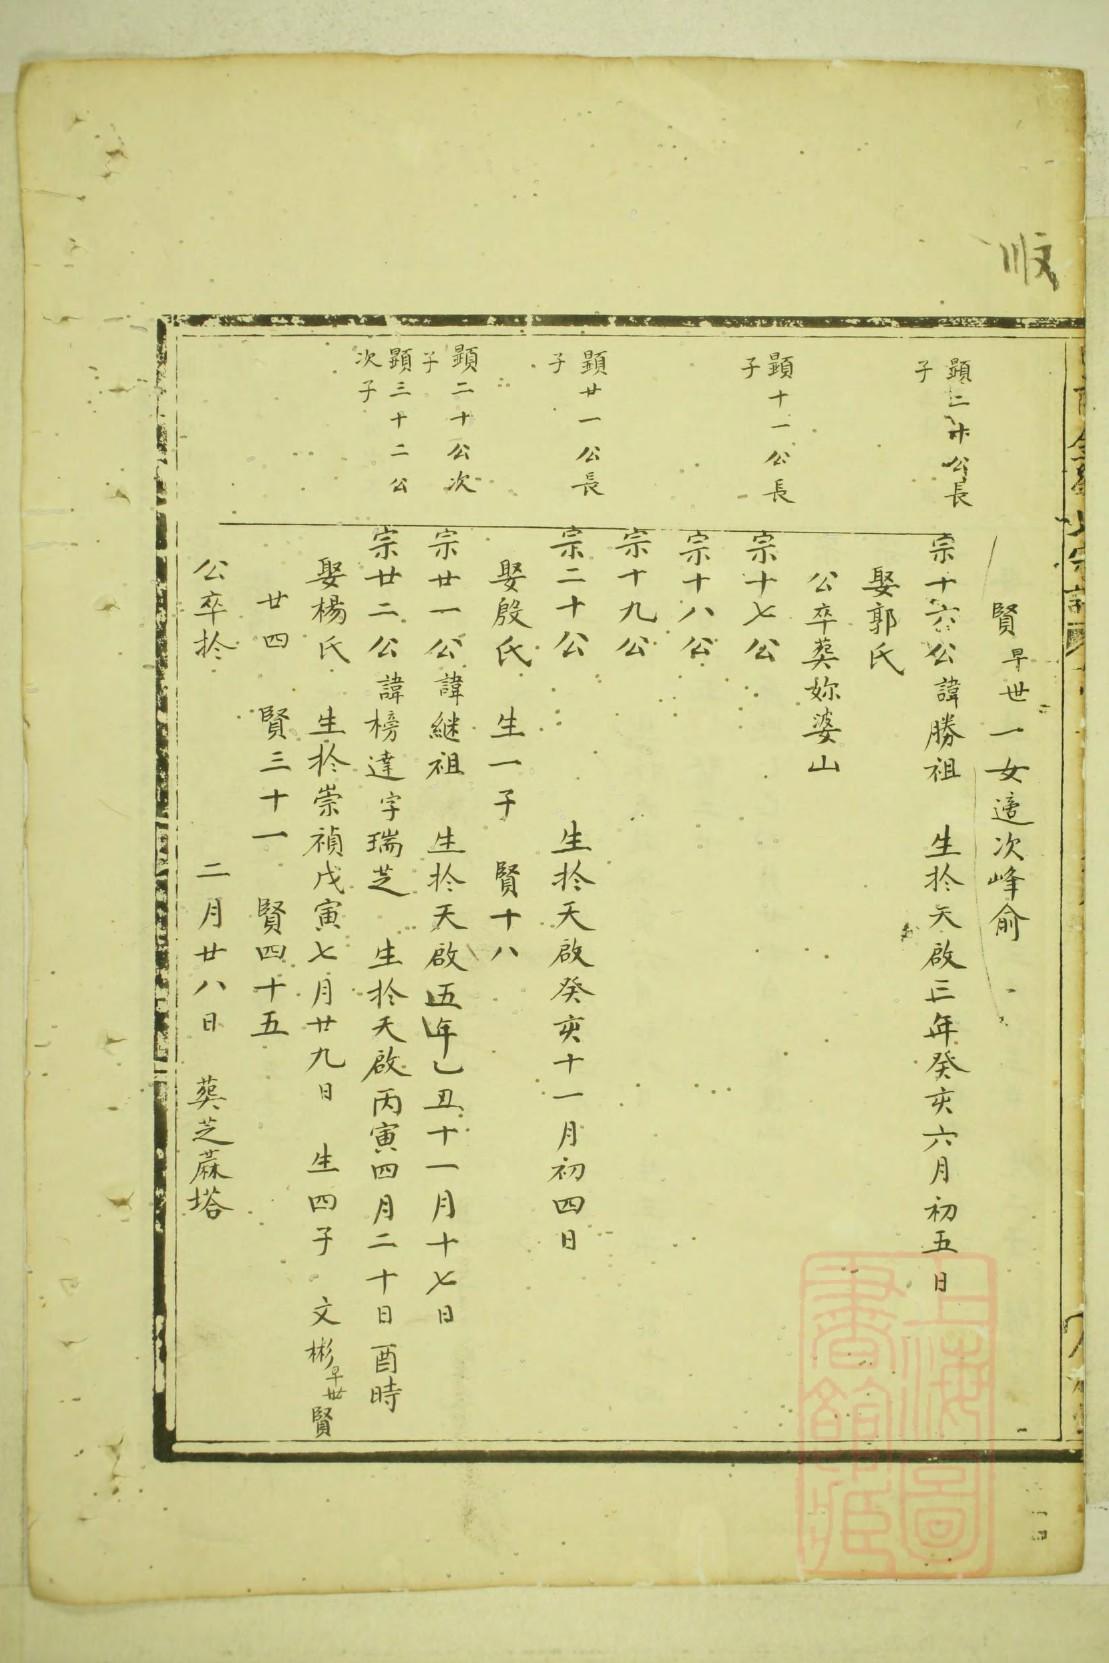 賢早世一女適次峰俞
顯二十公長子
宗十六公諱勝祖 生於天啟三年癸亥六月初五日
娶郭氏
公卒葬妳婆山
顯十一公長子
宗十七公
宗十八公
宗十九公
顯廿一公長子
宗二十公 生於天啟癸亥十一月初四日
娶殷氏 生一子 賢十八
顯二十公次子
宗廿一公諱継祖 生於天啟五年乙丑十一月十七日
顯三十二公次子
宗廿二公諱榜達字瑞芝 生於天啟丙寅四月二十日酉時
娶楊氏 生於崇禎戊寅七月廿九日 生四子 文彬早世 賢
廿四 賢三十一 賢四十五
公卒於 二月廿八日 葬芝蔴塔
上海圖
書館藏